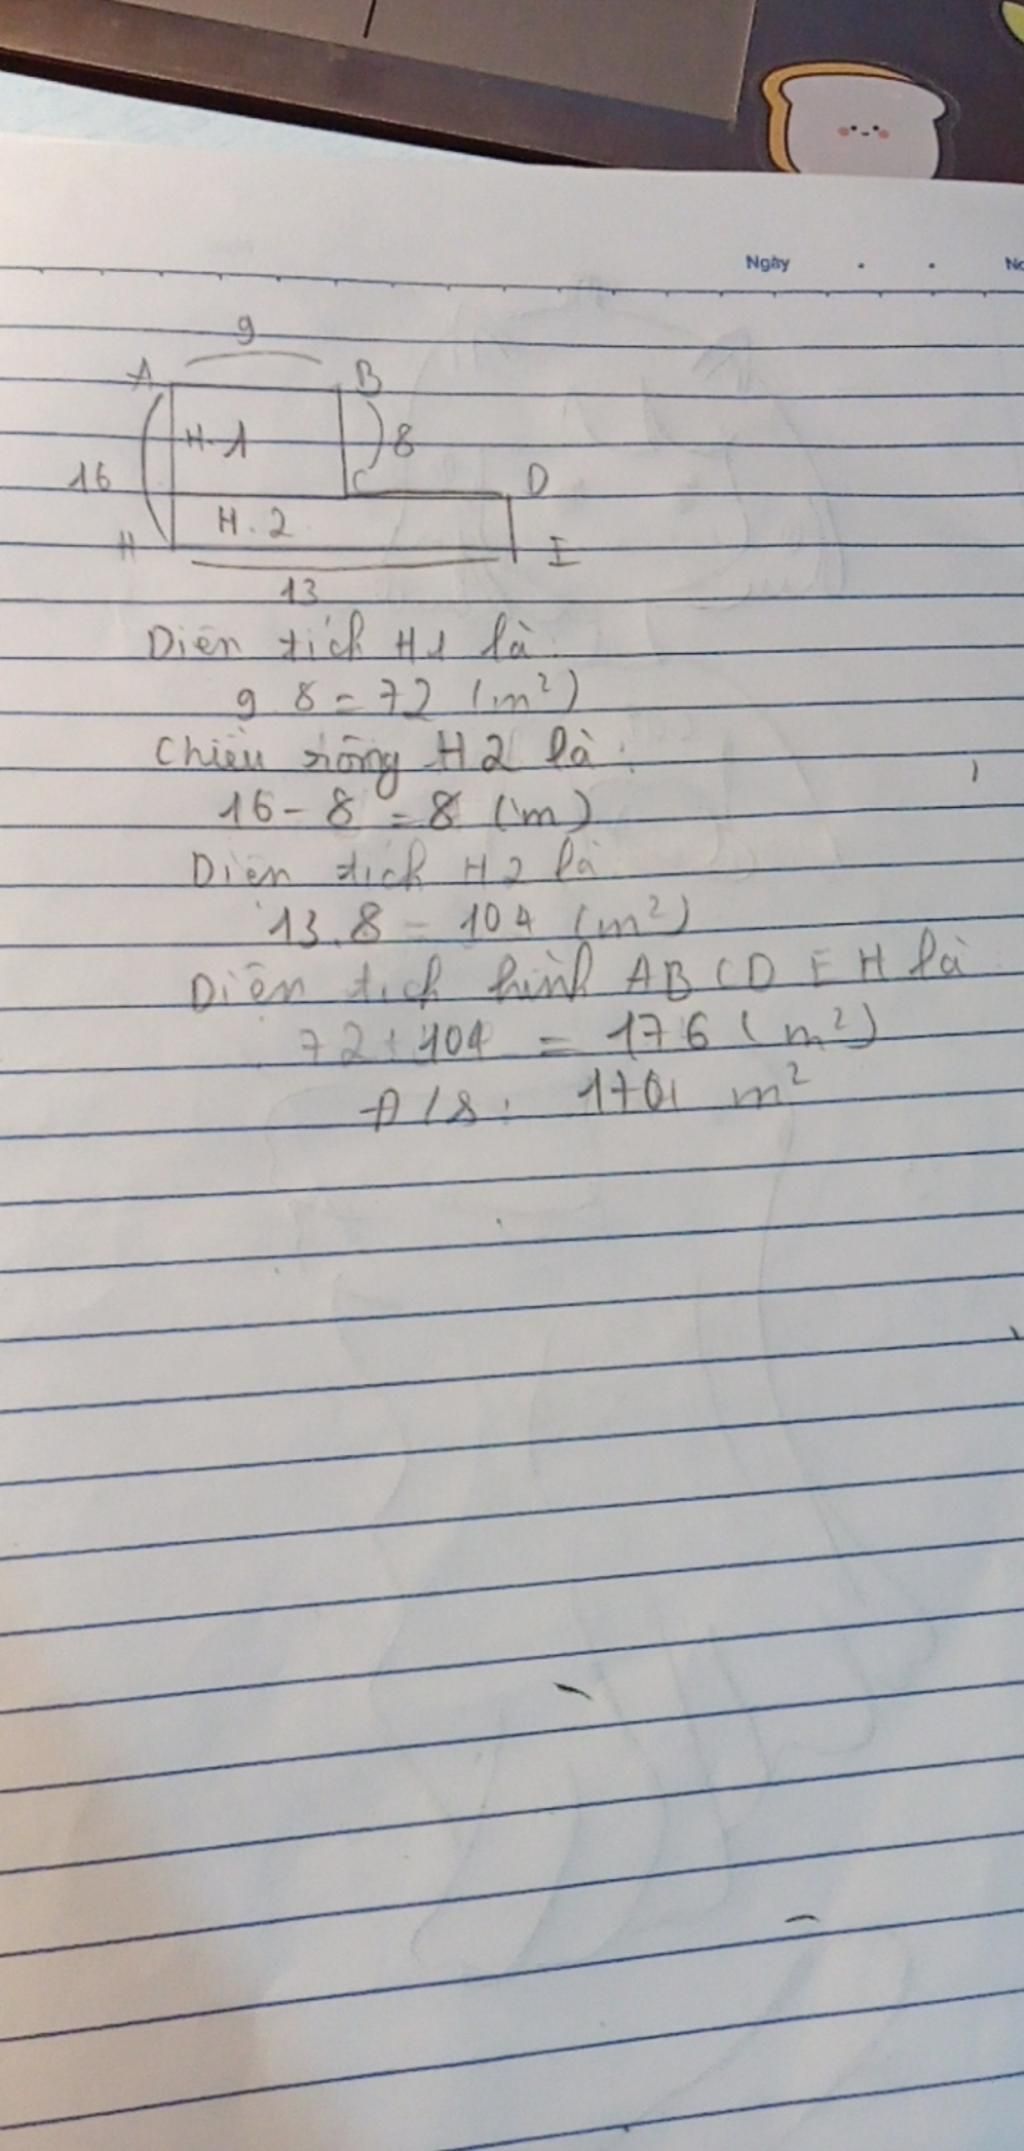 Ngày
9
A B
H.1 8
16 C D
H.2
H I
13
Diện tích H1 là:
9.8=72 (m²)
Chiều rộng H2 là:
16-8=8 (m)
Diện tích H2 là:
13.8=104 (m²)
Diện tích hình ABCDEH là:
72+104=176 (m²)
Đ/S: m²